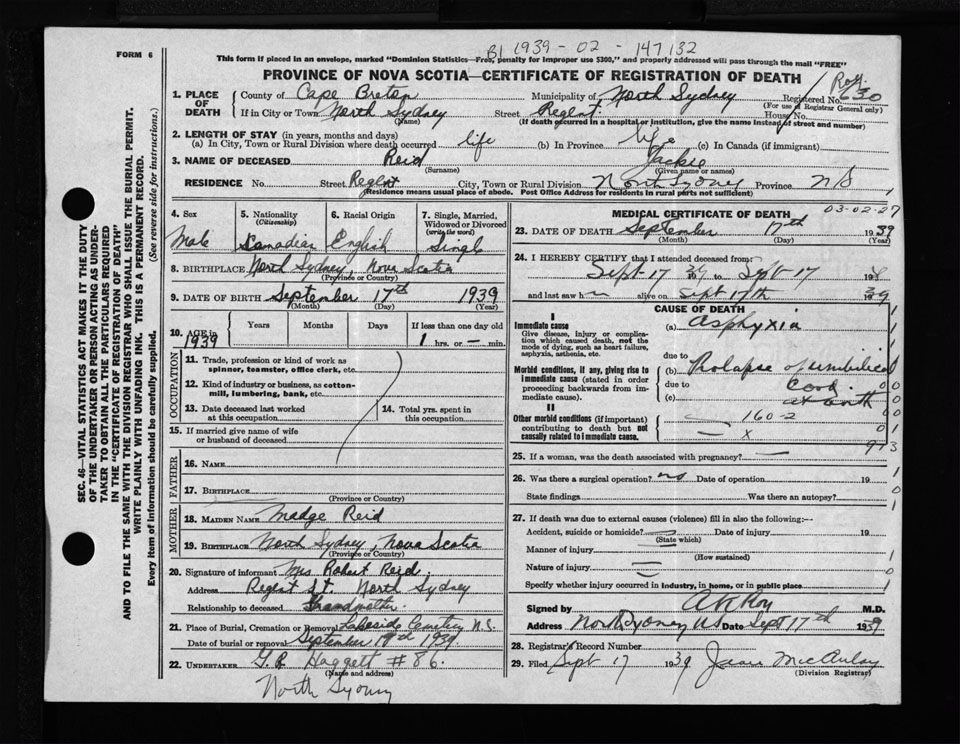 B1 1939 - 02 - 147132
FORM 6
This form if placed in an envelope, marked "Dominion Statistics—Free, penalty for improper use $300," and properly addressed will pass through the mail "FREE"
PROVINCE OF NOVA SCOTIA—CERTIFICATE OF REGISTRATION OF DEATH
1. PLACE OF DEATH
County of Cape Breton Municipality of North Sydney Registered No. 630
(For use of Registrar General only)
If in City or Town North Sydney Street Regent House No.
(Name) (If death occurred in a hospital or institution, give the name instead of street and number)
2. LENGTH OF STAY (in years, months and days)
(a) In City, Town or Rural Division where death occurred life (b) In Province life (c) In Canada (if immigrant)
3. NAME OF DECEASED Reid Jackie
(Surname) (Given name or names)
RESIDENCE No. Street Regent City, Town or Rural Division North Sydney Province NS
(Residence means usual place of abode. Post Office Address for residents in rural parts not sufficient)
SEC. 46—VITAL STATISTICS ACT MAKES IT THE DUTY
OF THE UNDERTAKER OR PERSON ACTING AS UNDER-
TAKER TO OBTAIN ALL THE PARTICULARS REQUIRED
IN THE "CERTIFICATE OF REGISTRATION OF DEATH"
AND TO FILE THE SAME WITH THE DIVISION REGISTRAR WHO SHALL ISSUE THE BURIAL PERMIT.
WRITE PLAINLY WITH UNFADING INK. THIS IS A PERMANENT RECORD.
Every item of information should be carefully supplied. (See reverse side for instructions.)
4. Sex
Male
5. Nationality
(Citizenship)
Canadian
6. Racial Origin
English
7. Single, Married,
Widowed or Divorced
(write the word)
Single
8. BIRTHPLACE North Sydney, Nova Scotia
(Province or Country)
9. DATE OF BIRTH September 17th 1939
(Month) (Day) (Year)
10. AGE in
1939
Years Months Days If less than one day old
1 hrs. or — min.
OCCUPATION
11. Trade, profession or kind of work as
spinner, teamster, office clerk, etc.
12. Kind of industry or business, as cotton-
mill, lumbering, bank, etc.
13. Date deceased last worked
at this occupation
14. Total yrs. spent in
this occupation
15. If married give name of wife
or husband of deceased
FATHER
16. Name
17. Birthplace
(Province or Country)
MOTHER
18. Maiden Name Madge Reid
19. Birthplace North Sydney, Nova Scotia
(Province or Country)
20. Signature of informant Mrs Robert Reid.
Address Regent St. North Sydney
Relationship to deceased Grandmother.
21. Place of Burial, Cremation or Removal Lakeside Cemetery N.S.
Date of burial or removal September 1939
22. Undertaker Haggett # 86.
(Name and address)
North Sydney
MEDICAL CERTIFICATE OF DEATH
03-02-27
23. DATE OF DEATH September 17th 1939
(Month) (Day) (Year)
24. I HEREBY CERTIFY that I attended deceased from:
Sept-17 1939 to Sept-17 193
and last saw h alive on Sept 17th 1939
CAUSE OF DEATH
I
Immediate cause
Give disease, injury or complica-
tion which caused death, not the
mode of dying, such as heart failure,
asphyxia, asthenia, etc.
(a) Asphyxia
due to
Morbid conditions, if any, giving rise to
immediate cause (stated in order
proceeding backwards from im-
mediate cause).
(b) Prolapse of umbilical
due to cord
(c) at birth
II
Other morbid conditions (if important)
contributing to death but not
causally related to immediate cause.
160-2
— x
973
25. If a woman, was the death associated with pregnancy? —
26. Was there a surgical operation? no Date of operation 19
State findings Was there an autopsy?
27. If death was due to external causes (violence) fill in also the following:—
Accident, suicide or homicide? Date of injury 19
(State which)
Manner of injury
(How sustained)
Nature of injury
Specify whether injury occurred in industry, in home, or in public place
Signed by A K Roy M.D.
Address North Sydney NS Date Sept 17th 1939
28. Registrar's Record Number
29. Filed Sept 17 1939 Jean McAulay
(Division Registrar)